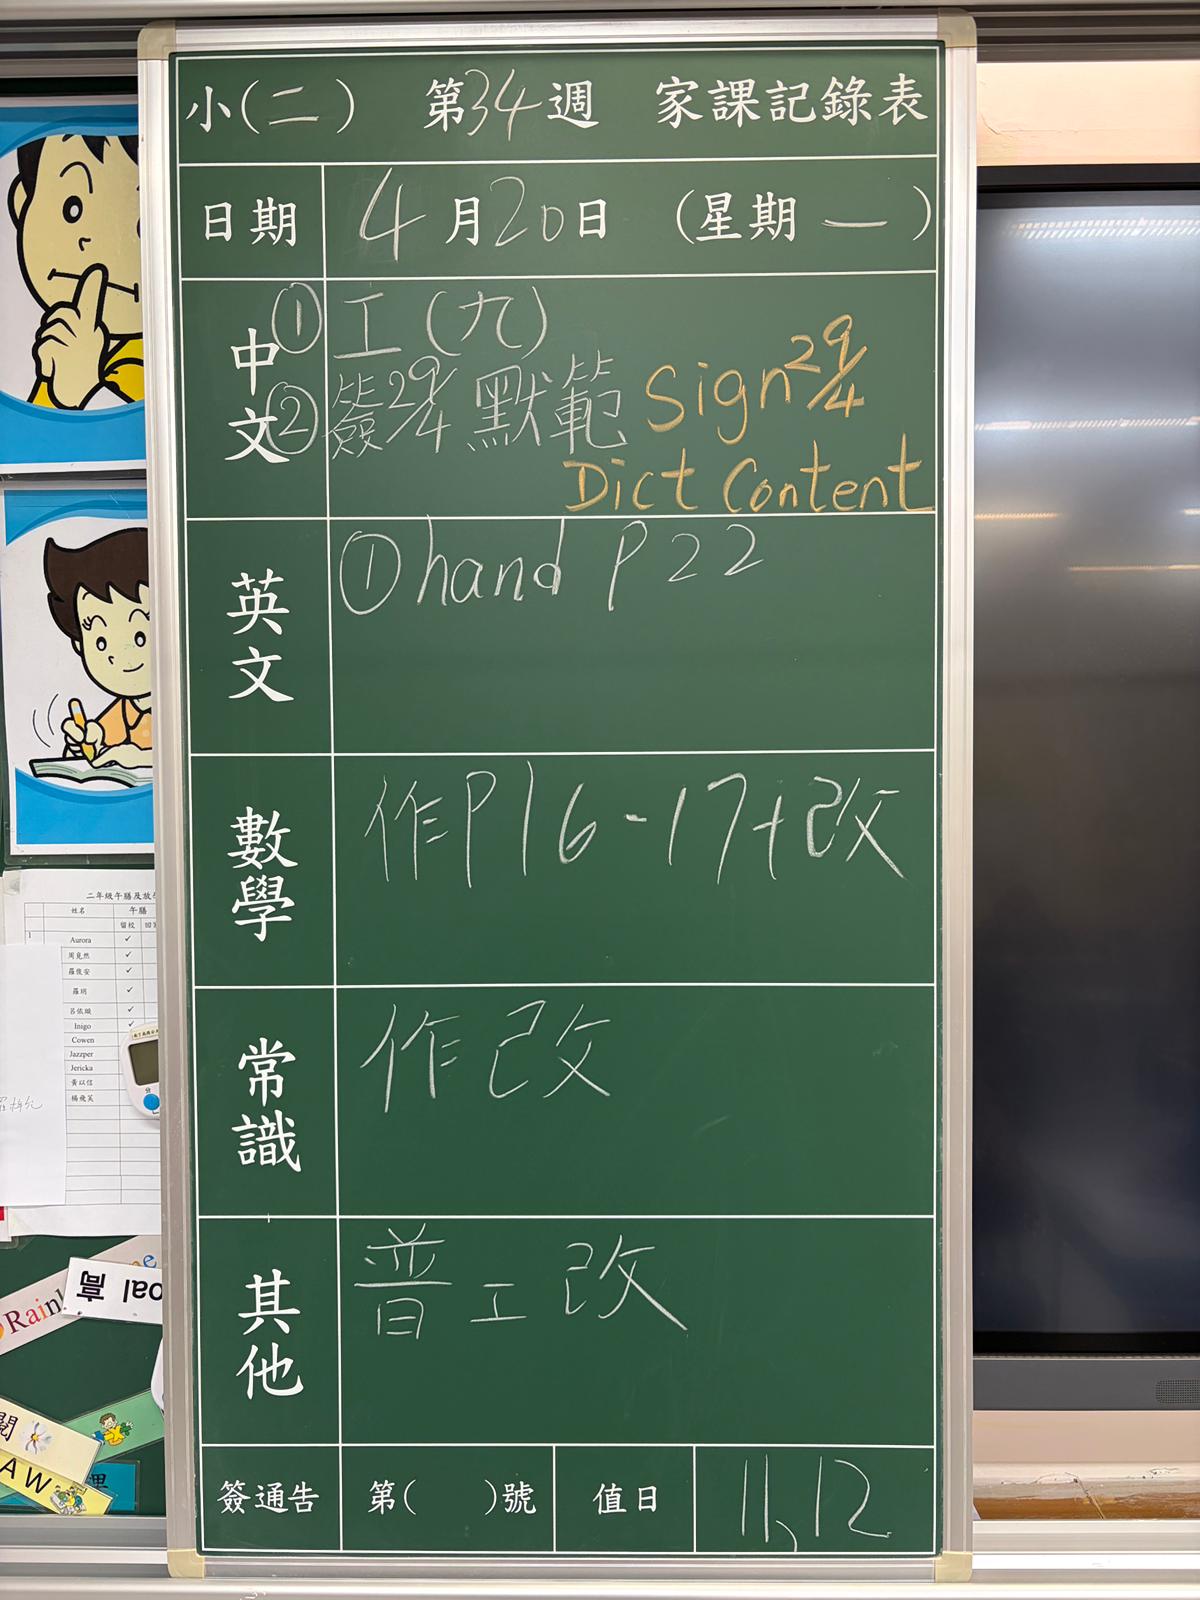 小(二) 第34週 家課記錄表
日期 4月20日 (星期一)
中文
① 工(九)
② 簽29/4 默範 Sign 29/4
Dict Content
英文
① hand P22
數學
作P16-17+改
常識
作改
其他
普工改
簽通告 第( )號 值日 11、12
二年級午膳及放
姓名 午膳
留校
1
Aurora ✓
羅俊安 ✓
Inigo ✓
Cowen
Jazzper
Jericka
黃以信
分
Rain
高 oal
AW